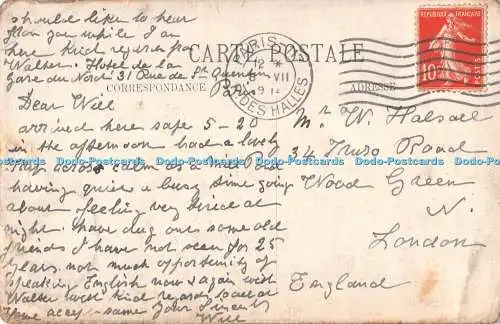 should like to hear
from you while I am
here kind regards from
Walker. Hotel de la
Gare du Nord 31 Rue de St Quentin
Paris
CARTE POSTALE
CORRESPONDANCE
ADRESSE
PARIS
12 *
VII
RUE DES HALLES
REPUBLIQUE FRANÇAISE
10
POSTES
Dear Will
arrived here safe 5-20
in the afternoon had a lovely
trip across calm as a mill Pond
having quite a busy time going
about feeling very tired at
night. have dug out some old
friends I have not seen for 25
years. not much opportunity of
speaking English now & again with
Walker with kind regards to all at
home accept same yours sincerely
Will
Mr. W. Halsall
34 Truro Road
Wood Green
N.
London
England
Dodo-Postcards Dodo-Postcards Dodo-Postcards Dodo-Postcards Dodo-Postcards Dodo-Postcards